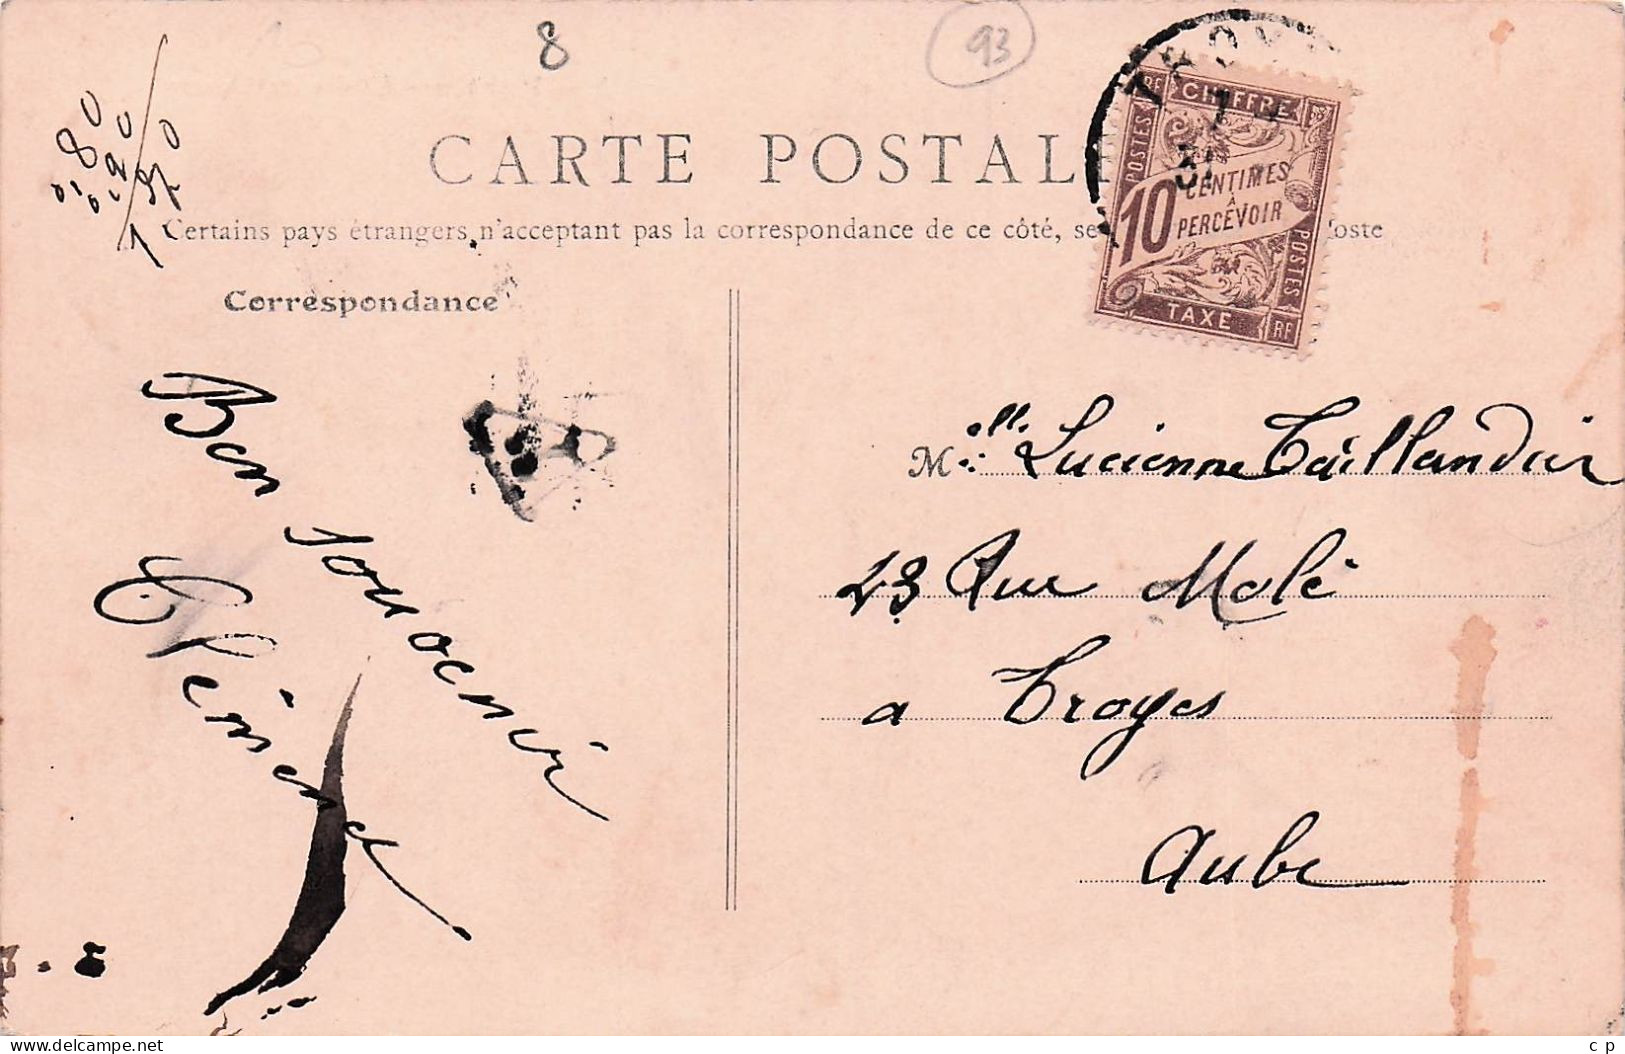 8
93
0.80
0.20
CARTE POSTAL
Certains pays étrangers n'acceptant pas la correspondance de ce côté, se
Poste
RF CHIFFRE
POSTES
10 CENTIMES
À
PERCEVOIR
POSTES
TAXE RF
Correspondance
Bon souvenir
Clément
Melle Lucienne Taillandier
23 Rue Molé
a Troyes
Aube
delcampe.net
c p